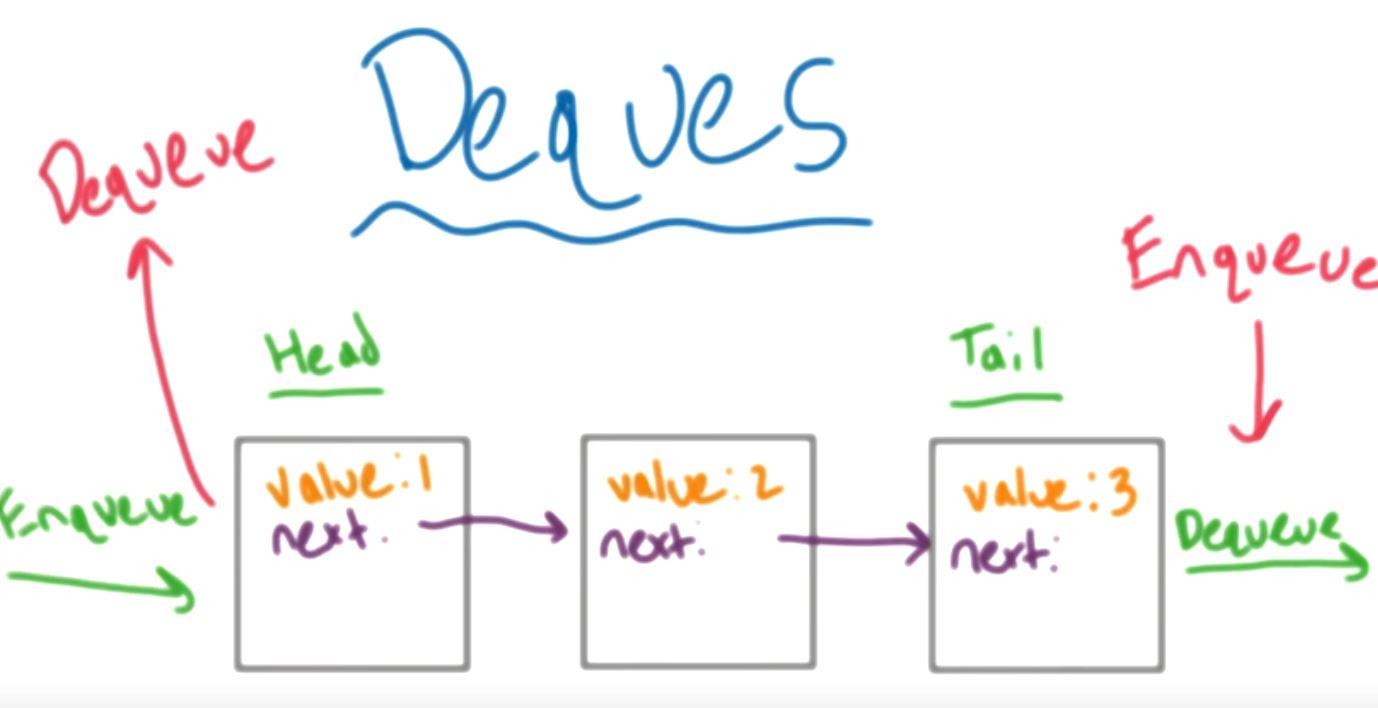 Deques
Dequeue
Enqueue
Head
Tail
value:1
next.
value:2
next:
value:3
next:
Enqueue
Dequeue